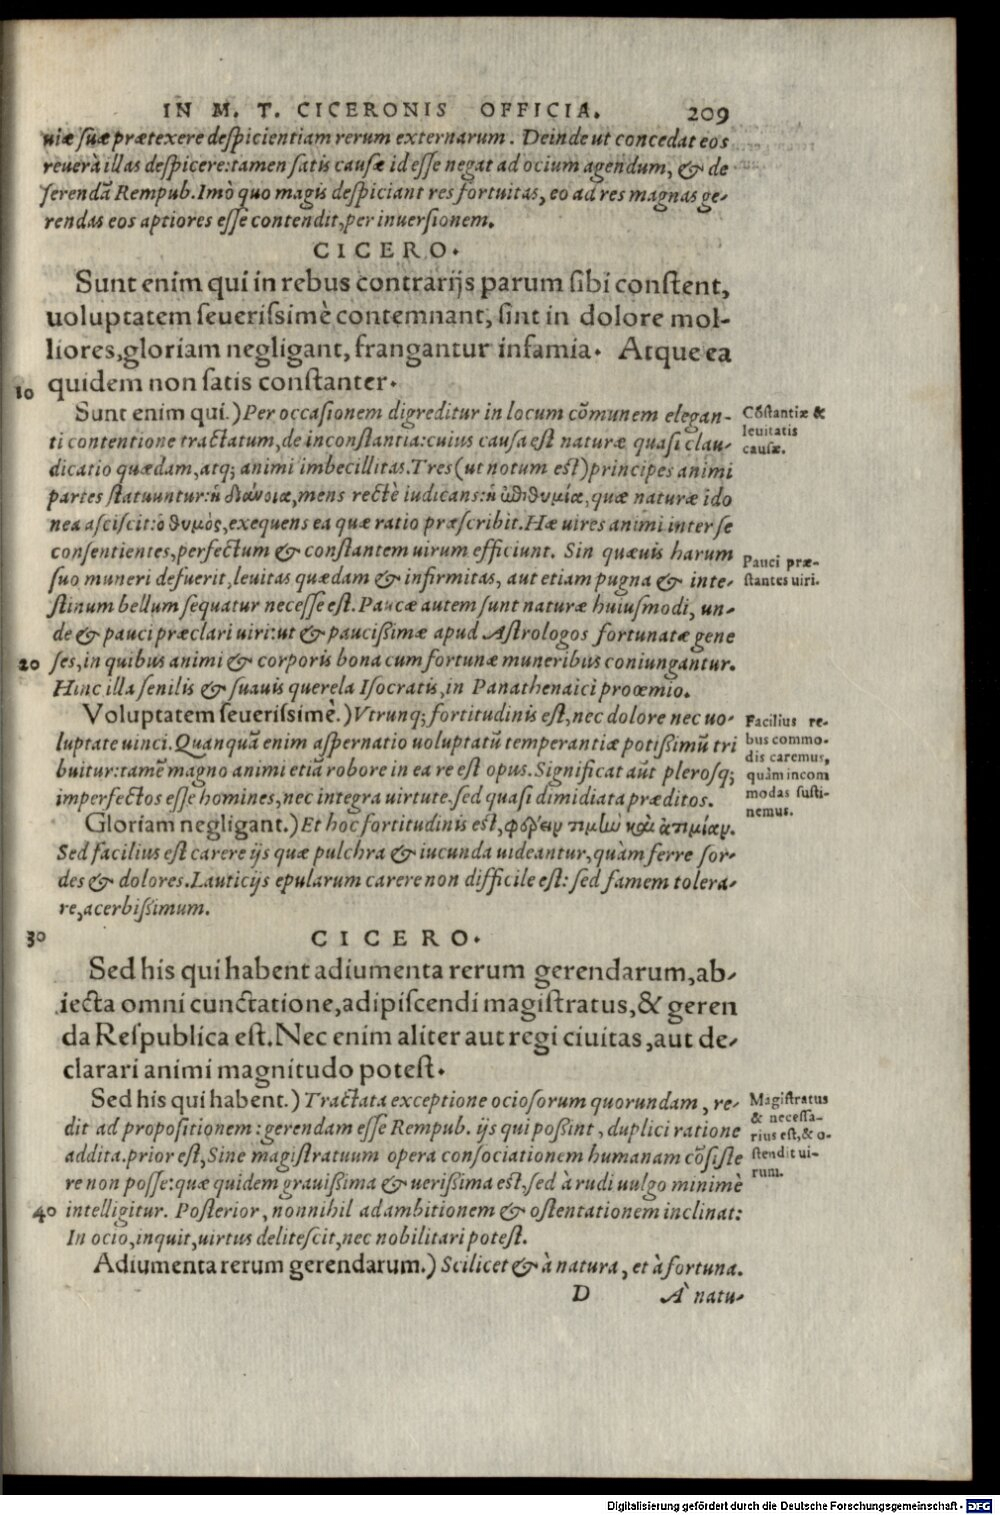 IN M. T. CICERONIS OFFICIA. 209
uiæ suæ prætexere despicientiam rerum externarum. Deinde ut concedat eos
reuerà illas despicere: tamen satis causæ id esse negat ad ocium agendum, & de
serendã Rempub. Imò quo magis despiciant res fortuitas, eo ad res magnas ge-
rendas eos aptiores esse contendit, per inuersionem.
CICERO.
Sunt enim qui in rebus contrarijs parum sibi constent,
uoluptatem seuerissimè contemnant, sint in dolore mol-
liores, gloriam negligant, frangantur infamia. Atque ea
10 quidem non satis constanter.
Sunt enim qui.) Per occasionem digreditur in locum cõmunem elegan-
ti contentione tractatum, de inconstantia: cuius causa est naturæ quasi clau-
dicatio quædam, atq; animi imbecillitas. Tres (ut notum est) principes animi
partes statuuntur: ἡ διάνοια, mens rectè iudicans: ἡ ἐπιθυμία, quæ naturæ ido
nea asciscit: ὁ θυμὸς, exequens ea quæ ratio præscribit. Hæ uires animi inter se
consentientes, perfectum & constantem uirum efficiunt. Sin quæuis harum
suo muneri defuerit, leuitas quædam & infirmitas, aut etiam pugna & inte-
stinum bellum sequatur necesse est. Paucæ autem sunt naturæ huiusmodi, un-
de & pauci præclari uiri: ut & paucißimæ apud Astrologos fortunatæ gene
20 ses, in quibus animi & corporis bona cum fortunæ muneribus coniungantur.
Hinc illa senilis & suauis querela Isocratis, in Panathenaici proœmio.
Voluptatem seuerissimè.) Vtrunq; fortitudinis est, nec dolore nec uo-
luptate uinci. Quanquã enim aspernatio uoluptatũ temperantiæ potißimũ tri
buitur: tamẽ magno animi etiã robore in ea re est opus. Significat aũt plerosq;
imperfectos esse homines, nec integra uirtute, sed quasi dimidiata præditos.
Gloriam negligant.) Et hoc fortitudinis est, φέρειν τιμὼ καὶ ἀτιμίαν.
Sed facilius est carere ijs quæ pulchra & iucunda uideantur, quàm ferre sor-
des & dolores. Lauticijs epularum carere non difficile est: sed famem tolera-
re, acerbißimum.
30 CICERO.
Sed his qui habent adiumenta rerum gerendarum, ab-
iecta omni cunctatione, adipiscendi magistratus, & geren
da Respublica est. Nec enim aliter aut regi ciuitas, aut de-
clarari animi magnitudo potest.
Sed his qui habent.) Tractata exceptione ociosorum quorundam, re-
dit ad propositionem: gerendam esse Rempub. ijs qui poßint, duplici ratione
addita. prior est, Sine magistratuum opera consociationem humanam cõsiste
re non posse: quæ quidem grauißima & uerißima est, sed à rudi uulgo minimè
40 intelligitur. Posterior, nonnihil ad ambitionem & ostentationem inclinat:
In ocio, inquit, uirtus delitescit, nec nobilitari potest.
Adiumenta rerum gerendarum.) Scilicet & à natura, et à fortuna.
D À natu-
Cõstantiæ &
leuitatis
causæ.
Pauci præ-
stantes uiri.
Facilius re-
bus commo-
dis caremus,
quàm incom
modas susti-
nemus.
Magistratus
& necessa-
rius est, & o-
stendit ui-
rum.
Digitalisierung gefördert durch die Deutsche Forschungsgemeinschaft - DFG